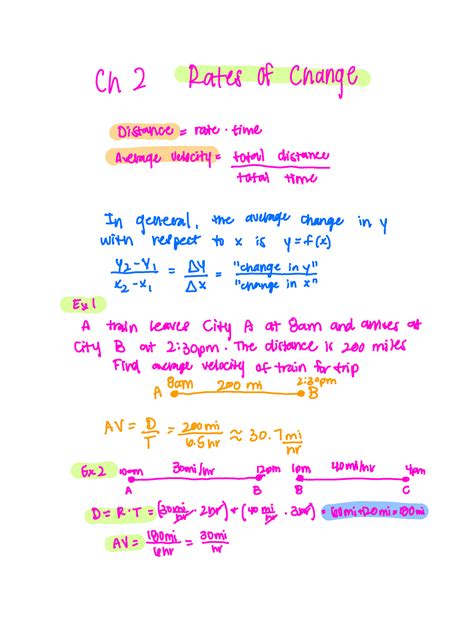 Ch 2 Rates of Change
Distance = rate · time
Average velocity = total distance / total time
In general, the average change in y
with respect to x is y = f(x)
y₂-y₁ / x₂-x₁ = Δy / Δx = "change in y" / "change in x"
Ex 1
A train leaves City A at 8am and arrives at
City B at 2:30pm. The distance is 200 miles
Find average velocity of train for trip
8am 200 mi 2:30pm
A B
AV = D / T = 200mi / 6.5hr ≈ 30.7 mi / hr
Ex 2 10am 30mi/hr 12pm 1pm 40mi/hr 4pm
A B B C
D = R·T = (30 mi/hr · 2hr) + (40 mi/hr · 3hr) = 60mi+120mi=180mi
AV = 180mi / 6hr = 30mi / hr